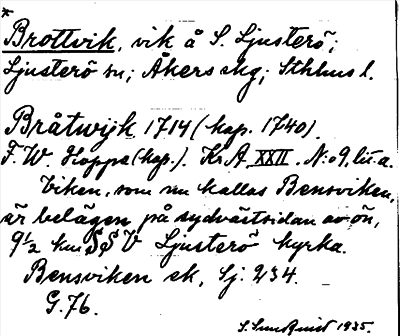 *
Brottvik, vik å S. Ljusterö;
Ljusterö sn; Åkers skg; Sthlms l.
Bråtwijk 1714 (kop. 1740).
F. W. Hoppe (kop.). Kr A XXII. N:o 9, lit. a.
Viken, som nu kallas Bensviken,
är belägen på sydvästsidan av ön,
9 1/2 km SSV Ljusterö kyrka.
Bensviken ek, Sj. 234.
G. 76.
S. Sundquist 1935.